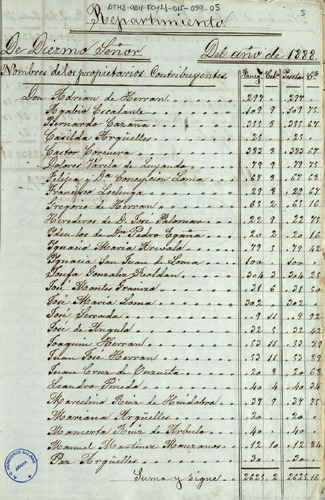 ATHA-DAH-FQ121-015-059-05
5
Repartimiento
De Diezmo Señor Del año de 1888
Nombres de los proprietarios Contribuyentes. Faneg Cels Pesetas Cts
Don Adrian de Herran 297 297
Agabio Escalante 107 3 107 25
Bernardo Cazaña 355 8 355 67
Casilda Argüelles 25 25
Castor Conchero 383 8 383 67
Dolores Varela de Luyando 79 9 79 75
Felipa y Dª Concepcion Loma 67 8 67 68
Francisco Lechuga 29 8 29 67
Gregorio de Herran 65 2 65 16
Herederos de D. José Palomar 22 9 22 75
Yden los de Dª Pedro Egaña 20 2 20 16
Ygnacio Maria Arevalo 79 5 79 42
Ygnacia San Juan de Loma 100 100
Josefa Gonzalez Roldan 304 3 304 25
José Montes Graniza 31 6 31 50
José Maria Loma 302 302
José Serrada 9 11 9 92
José de Angulo 32 5 32 42
Joaquin Herran 53 11 53 89
Juan José Herran 53 11 53 89
Juan Cruz de Unzueta 20 8 20 67
Leandro Pineda 40 4 40 34
Marcelino Ruiz de Huidobro 37 9 37 75
Mariana Argüelles 20 20
Mamerta Ruiz de Arbulo 40 40
Manuel Martinez Manzanos 12 10 12 84
Paz Argüelles 30 30
Suma y sigue 2625 2 2625 16